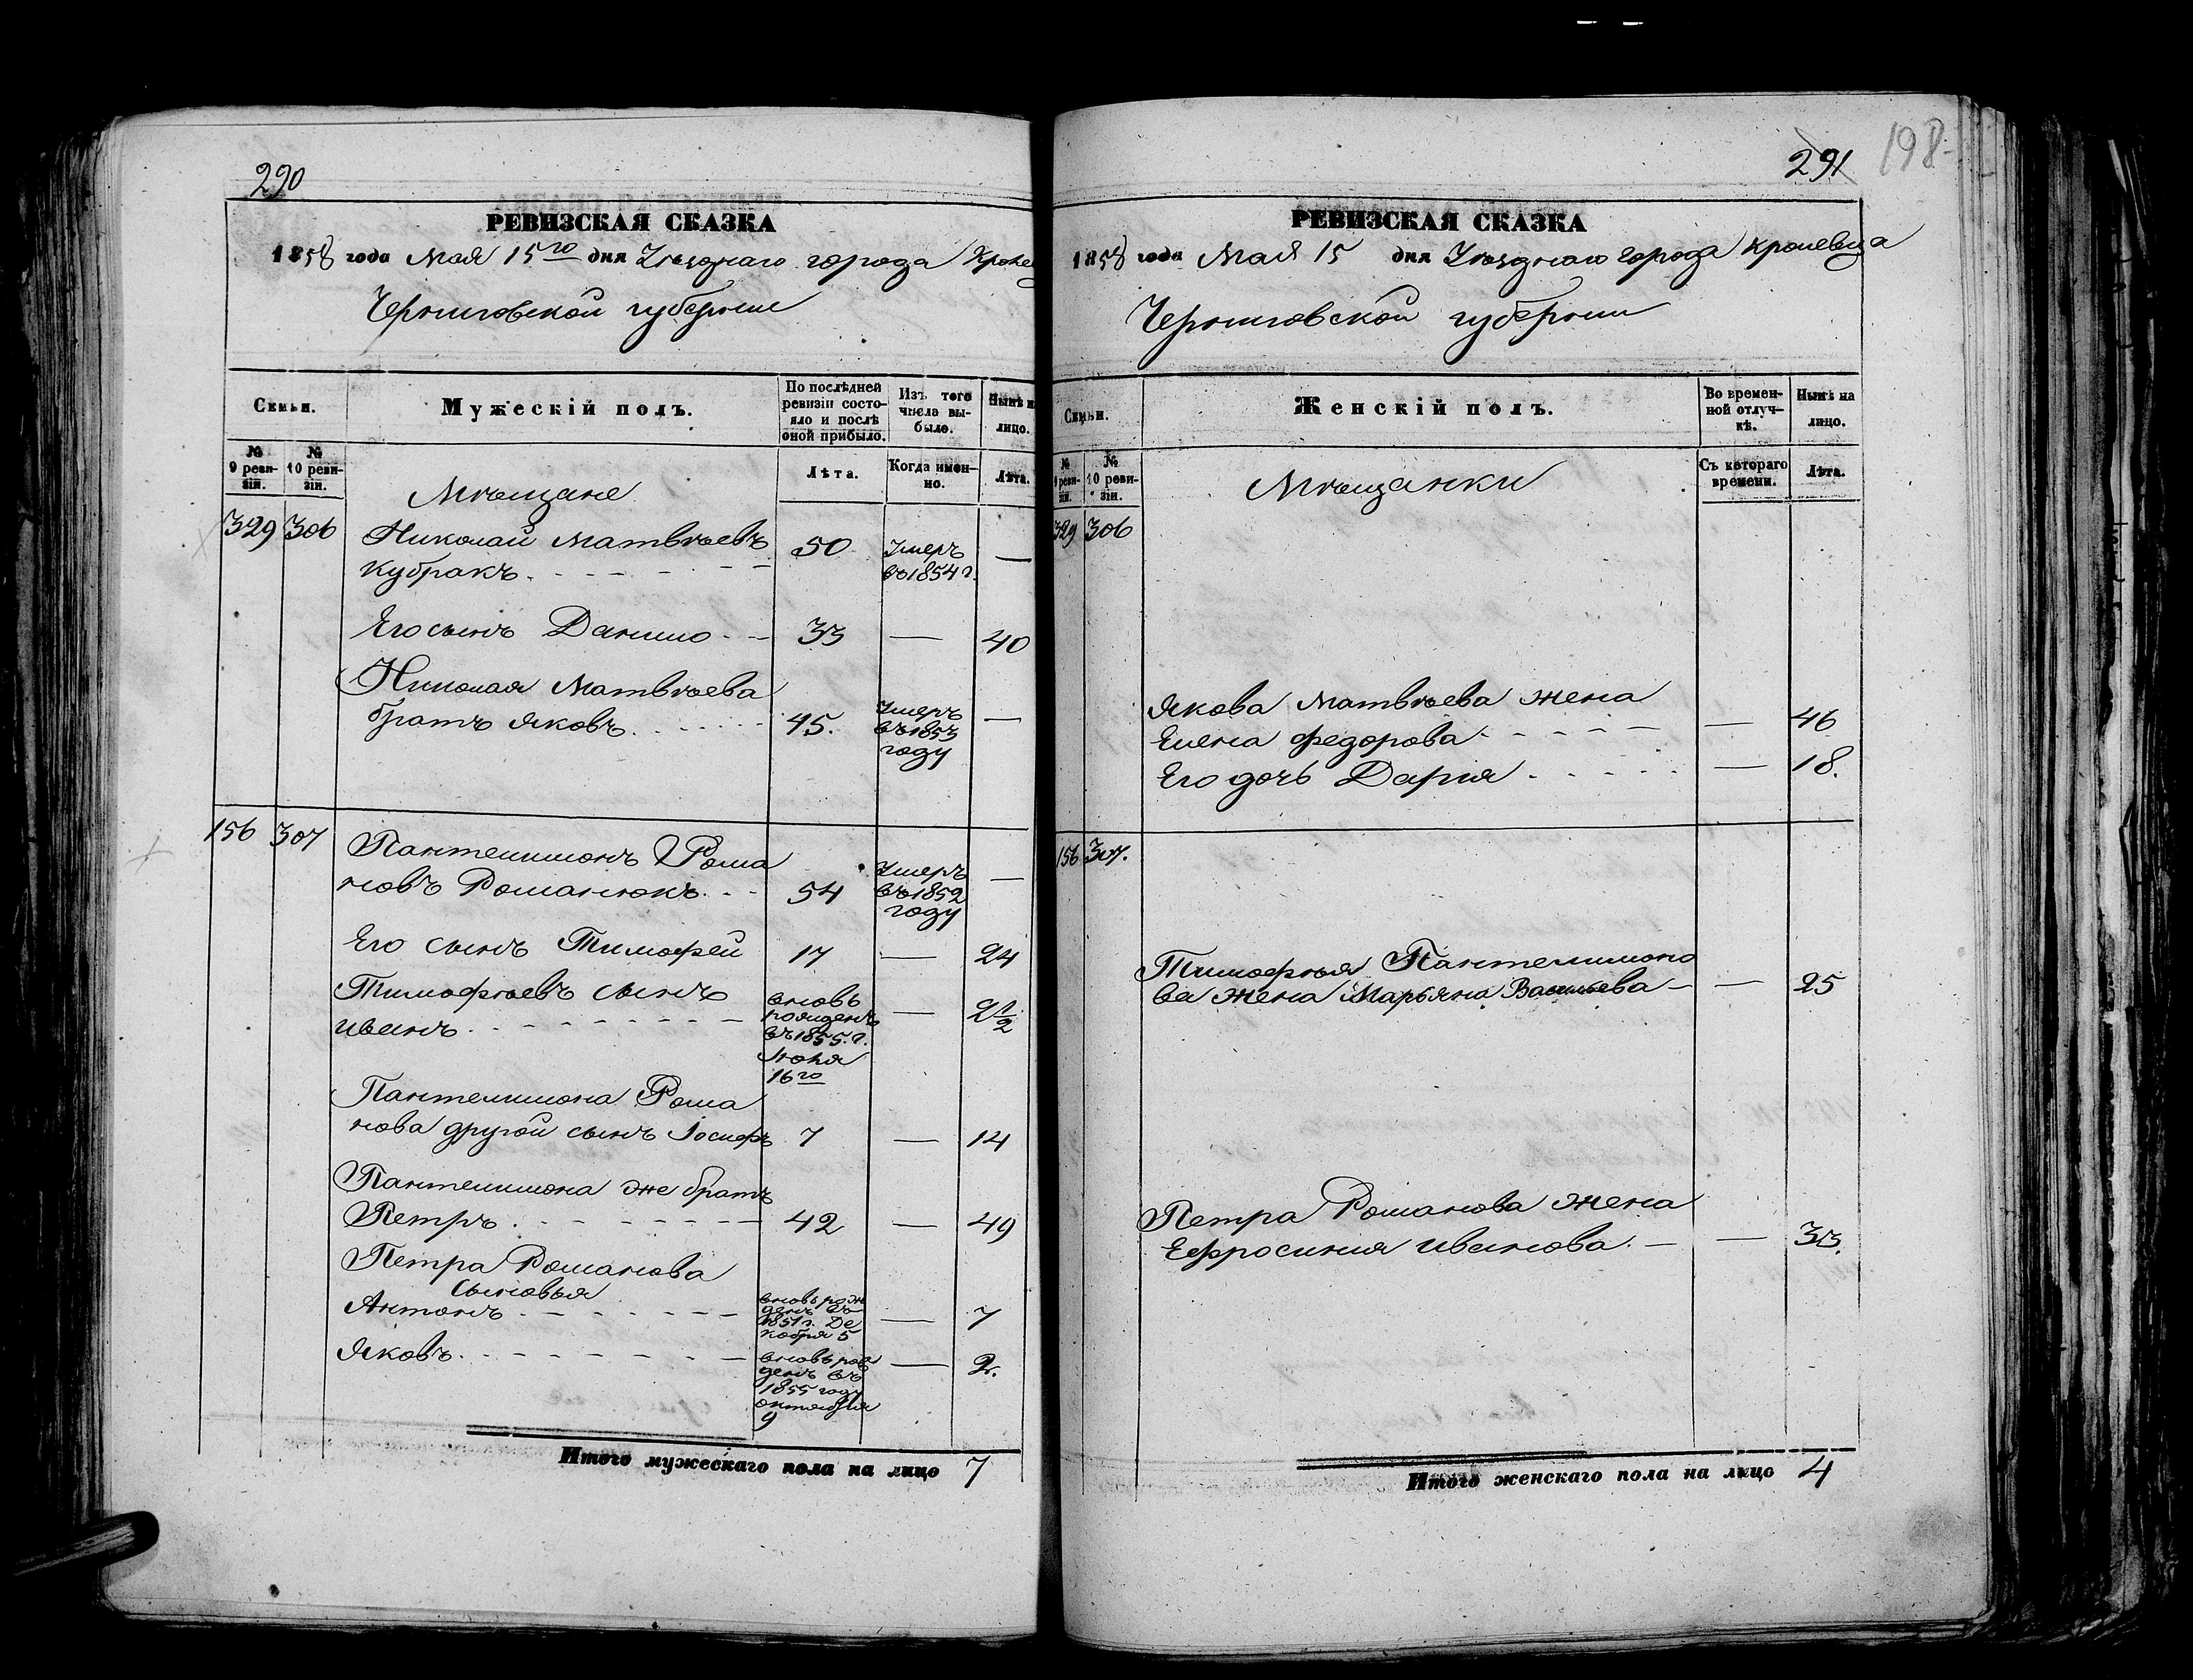 290
РЕВИЗСКАЯ СКАЗКА
1858 года Мая 15го дня Уѣзднаго города Кролев
Черниговской губернии
Семьи.
Мужескій полъ.
По послѣдней
ревизіи состо-
яло и послѣ
оной прибыло.
Изъ того
числа вы-
было.
Нынѣ н
лицо.
№
9 реви-
зіи.
№
10 реви-
зіи.
Лѣта.
Когда имен-
но.
Лѣта.
Мѣщане
329 306 Николай Матвѣевъ 50 Умеръ —
Кубракъ въ 1854 г.
Его сынъ Данило 33 — 40
Николая Матвѣева
братъ Яковъ 45. Умеръ —
въ 1853
году
156 307 Пантелимонъ Рома
новъ Романюкъ 54 Умеръ —
въ 1852
году
Его сынъ Тимофей 17 — 24
Тимофѣевъ сынъ вновь
Иванъ рожденъ — 2 1/2
въ 1855. г.
16го
Пантелимона Рома
нова другой сынъ Іосифъ 7 — 14
Пантелимона же братъ
Петръ 42 — 49
Петра Романова
Сыновья
Антонъ вновь рож — 7
денъ въ
1851 г. Де
кабря 5
Яковъ вновь рож — 2.
денъ въ
1855 году
октября
9
Итого мужескаго пола на лицо 7
291
198
РЕВИЗСКАЯ СКАЗКА
1858 года Мая 15 дня Уѣзднаго города Кролевца
Черниговской губернии
Семьи.
Женскій полъ.
Во времен-
ной отлуч-
кѣ.
Нынѣ на
лицо.
№
9 реви-
зіи.
№
10 реви-
зіи.
Съ котораго
времени.
Лѣта.
Мѣщанки
329 306
Якова Матвѣева жена
Елена Федорова — 46
Его дочь Дария — 18.
156 307.
Тимофѣя Пантелимоно
ва жена Марьяна Васильева — 25
Петра Романова жена
Ефросиния Иванова — 33.
Итого женскаго пола на лицо 4